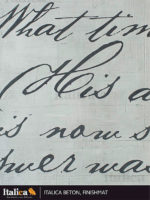 What tim
His a
is now s
swer was
Italica
ITALICA BETON, FINISHMAT